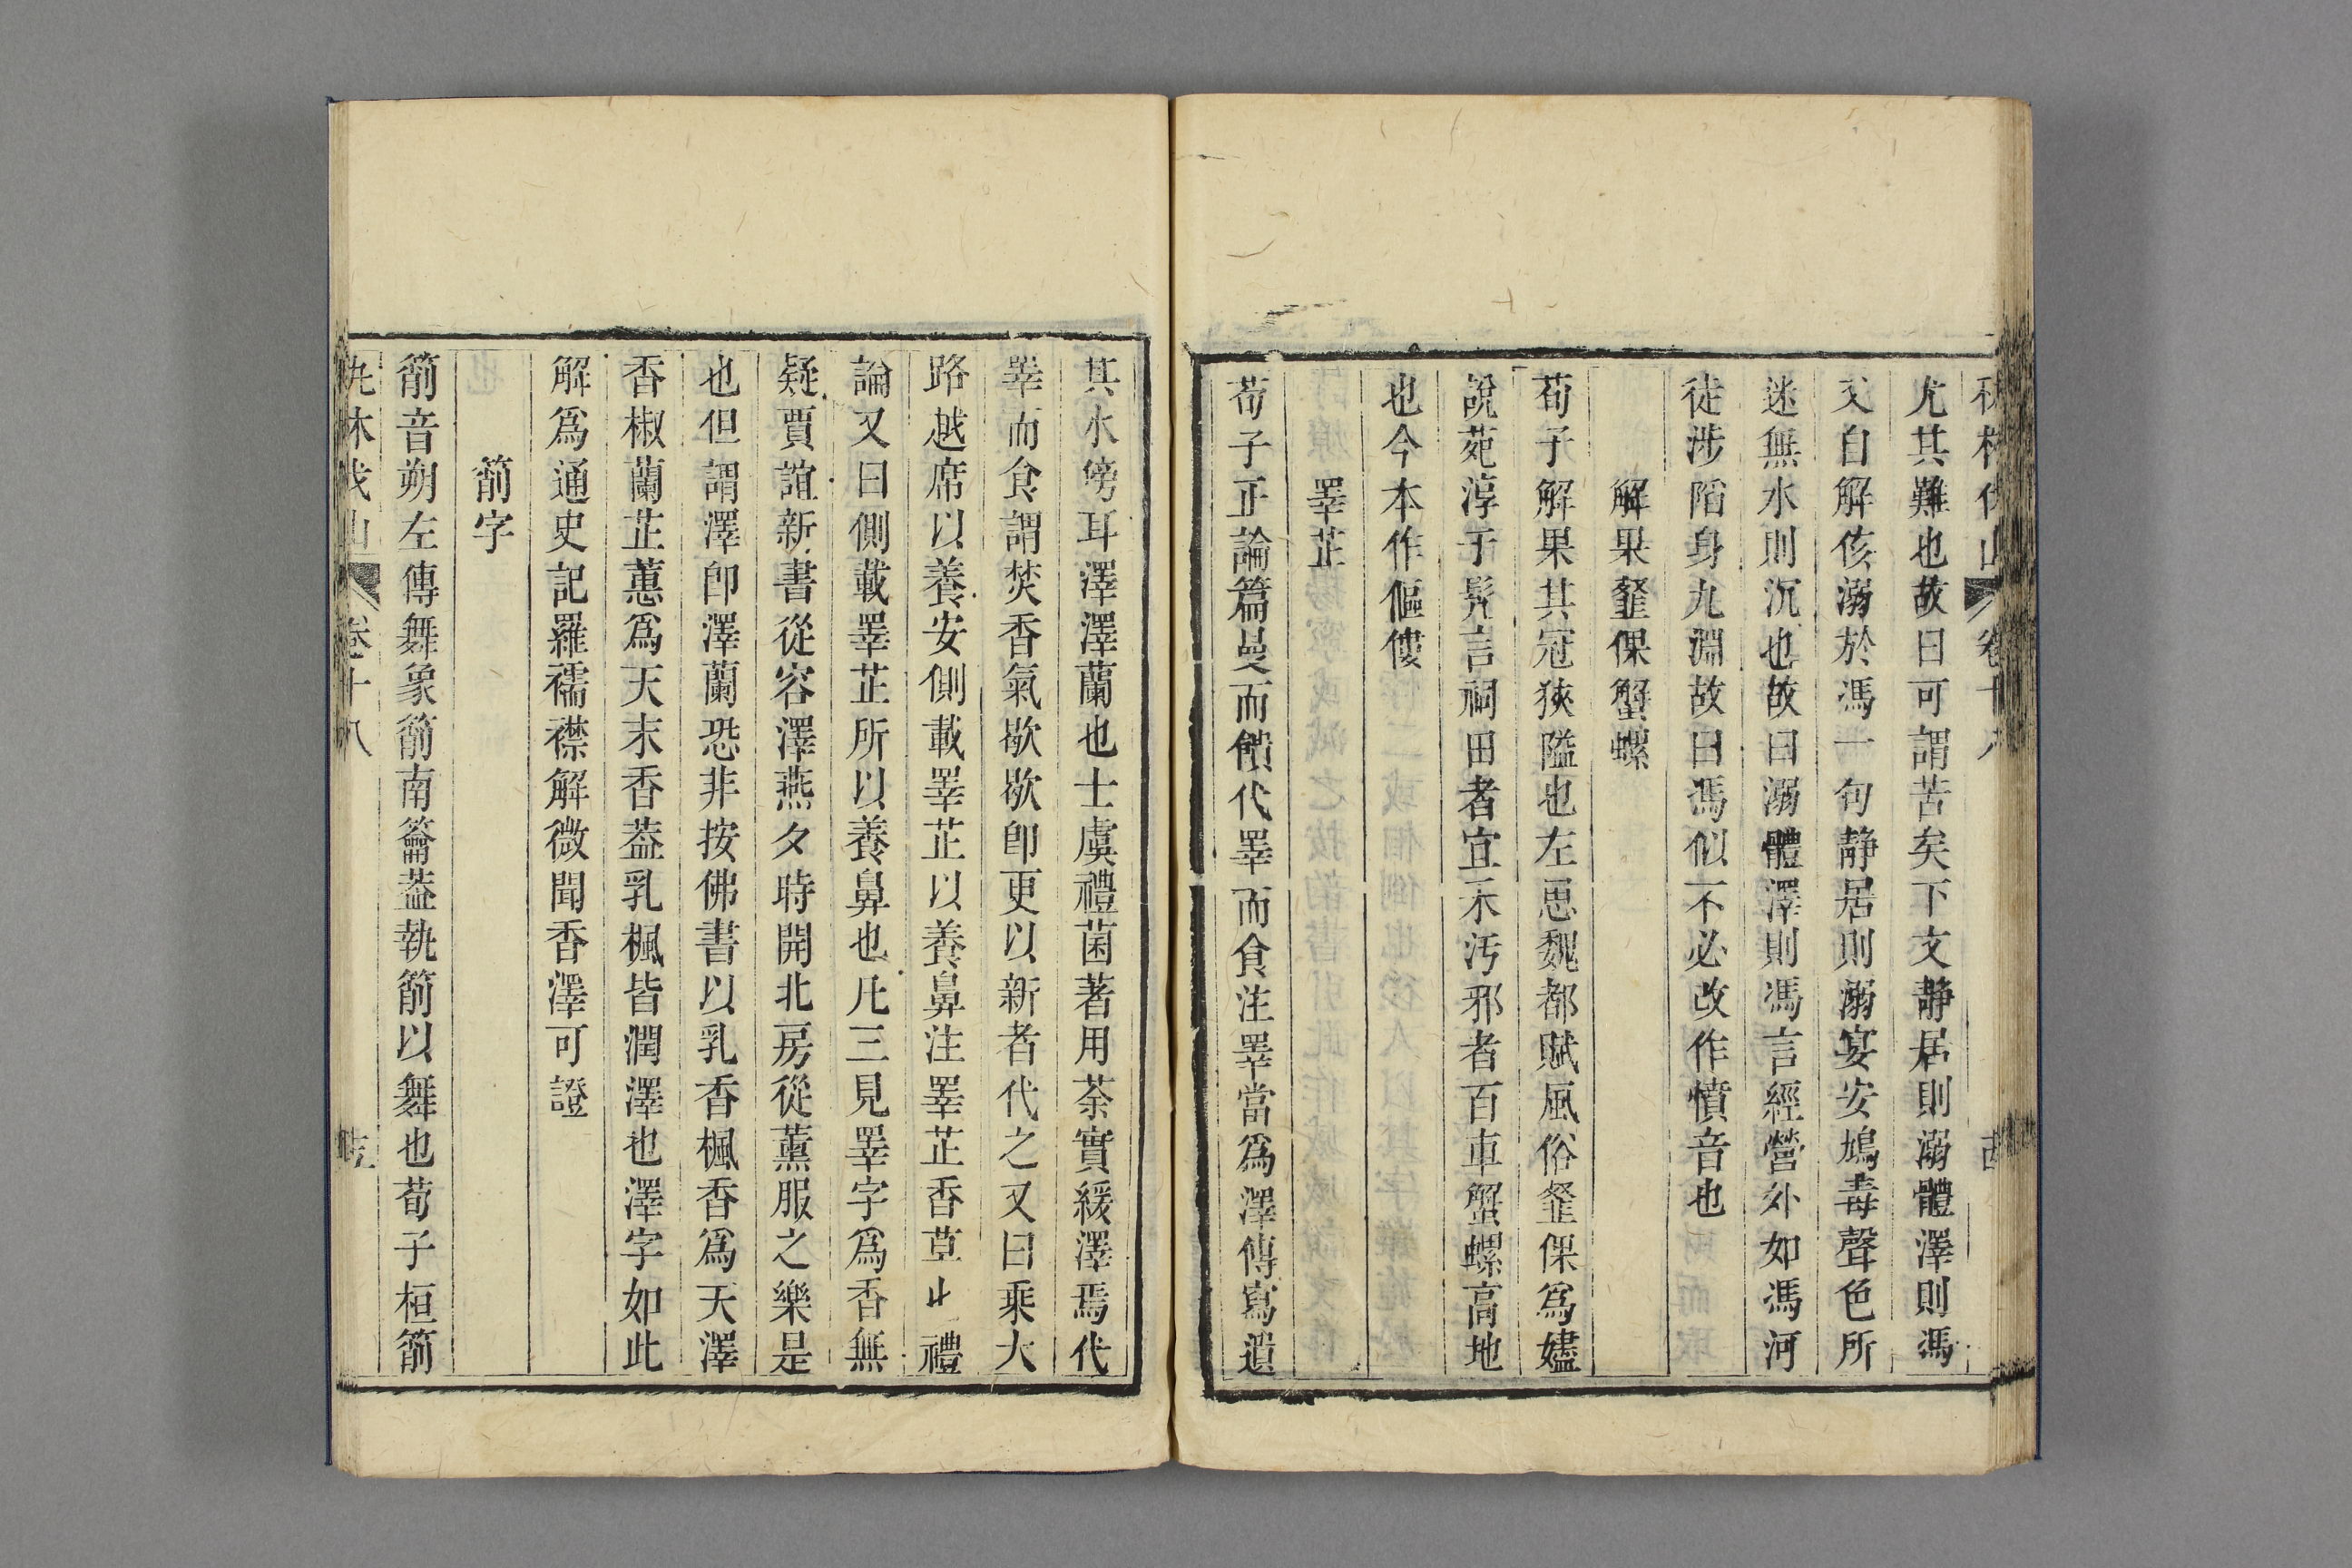 尤其難也故曰可謂苦矣下文靜居則溺體澤則馮
文自解侅溺於馮一句靜居則溺宴安鴆毒聲色所
迷無水則沉也故曰溺體澤則馮言經營外如馮河
徒涉陷身九淵故曰馮似不必改作憤音也
解果𨏍倮蟹螺
荀子解果其冠狹隘也左思魏都賦風俗𨏍倮爲嫿
說苑淳于髠言祠田者宜禾汚邪者百車蟹螺高地
也今本作傴僂
睪芷
荀子正論篇曼而饋代睪而食注睪當爲澤傳寫遺
其水傍耳澤澤蘭也士虞禮茵著用荼實綏澤焉代
睪而食謂焚香氣歇歇卽更以新者代之又曰乘大
路越席以養安側載睪芷以養鼻注睪芷香草止禮
論又曰側載睪芷所以養鼻也凡三見睪字爲香無
疑賈誼新書從容澤燕夕時開北房從薰服之樂是
也但謂澤卽澤蘭恐非按佛書以乳香楓香爲天澤
香椒蘭芷蕙爲天末香葢乳楓皆潤澤也澤字如此
解爲通史記羅襦襟解微聞香澤可證
箾字
箾音朔左傳舞象箾南籥葢執箾以舞也荀子桓箾
卷十八